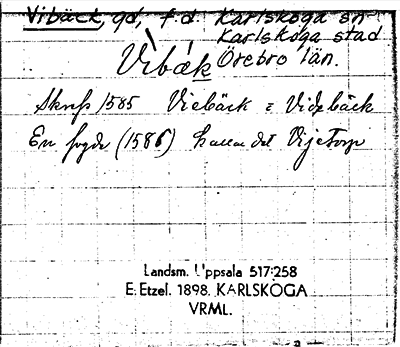 Vibäck, gd, f d Karlskoga sn
Karlskoga stad
Vibæk Örebro län.
1585 Viebäck = Videbäck
En fogde (1586) kallar det Vijetorp
Landsm. Uppsala 517:258
E. Etzel. 1898. KARLSKOGA
VRML.